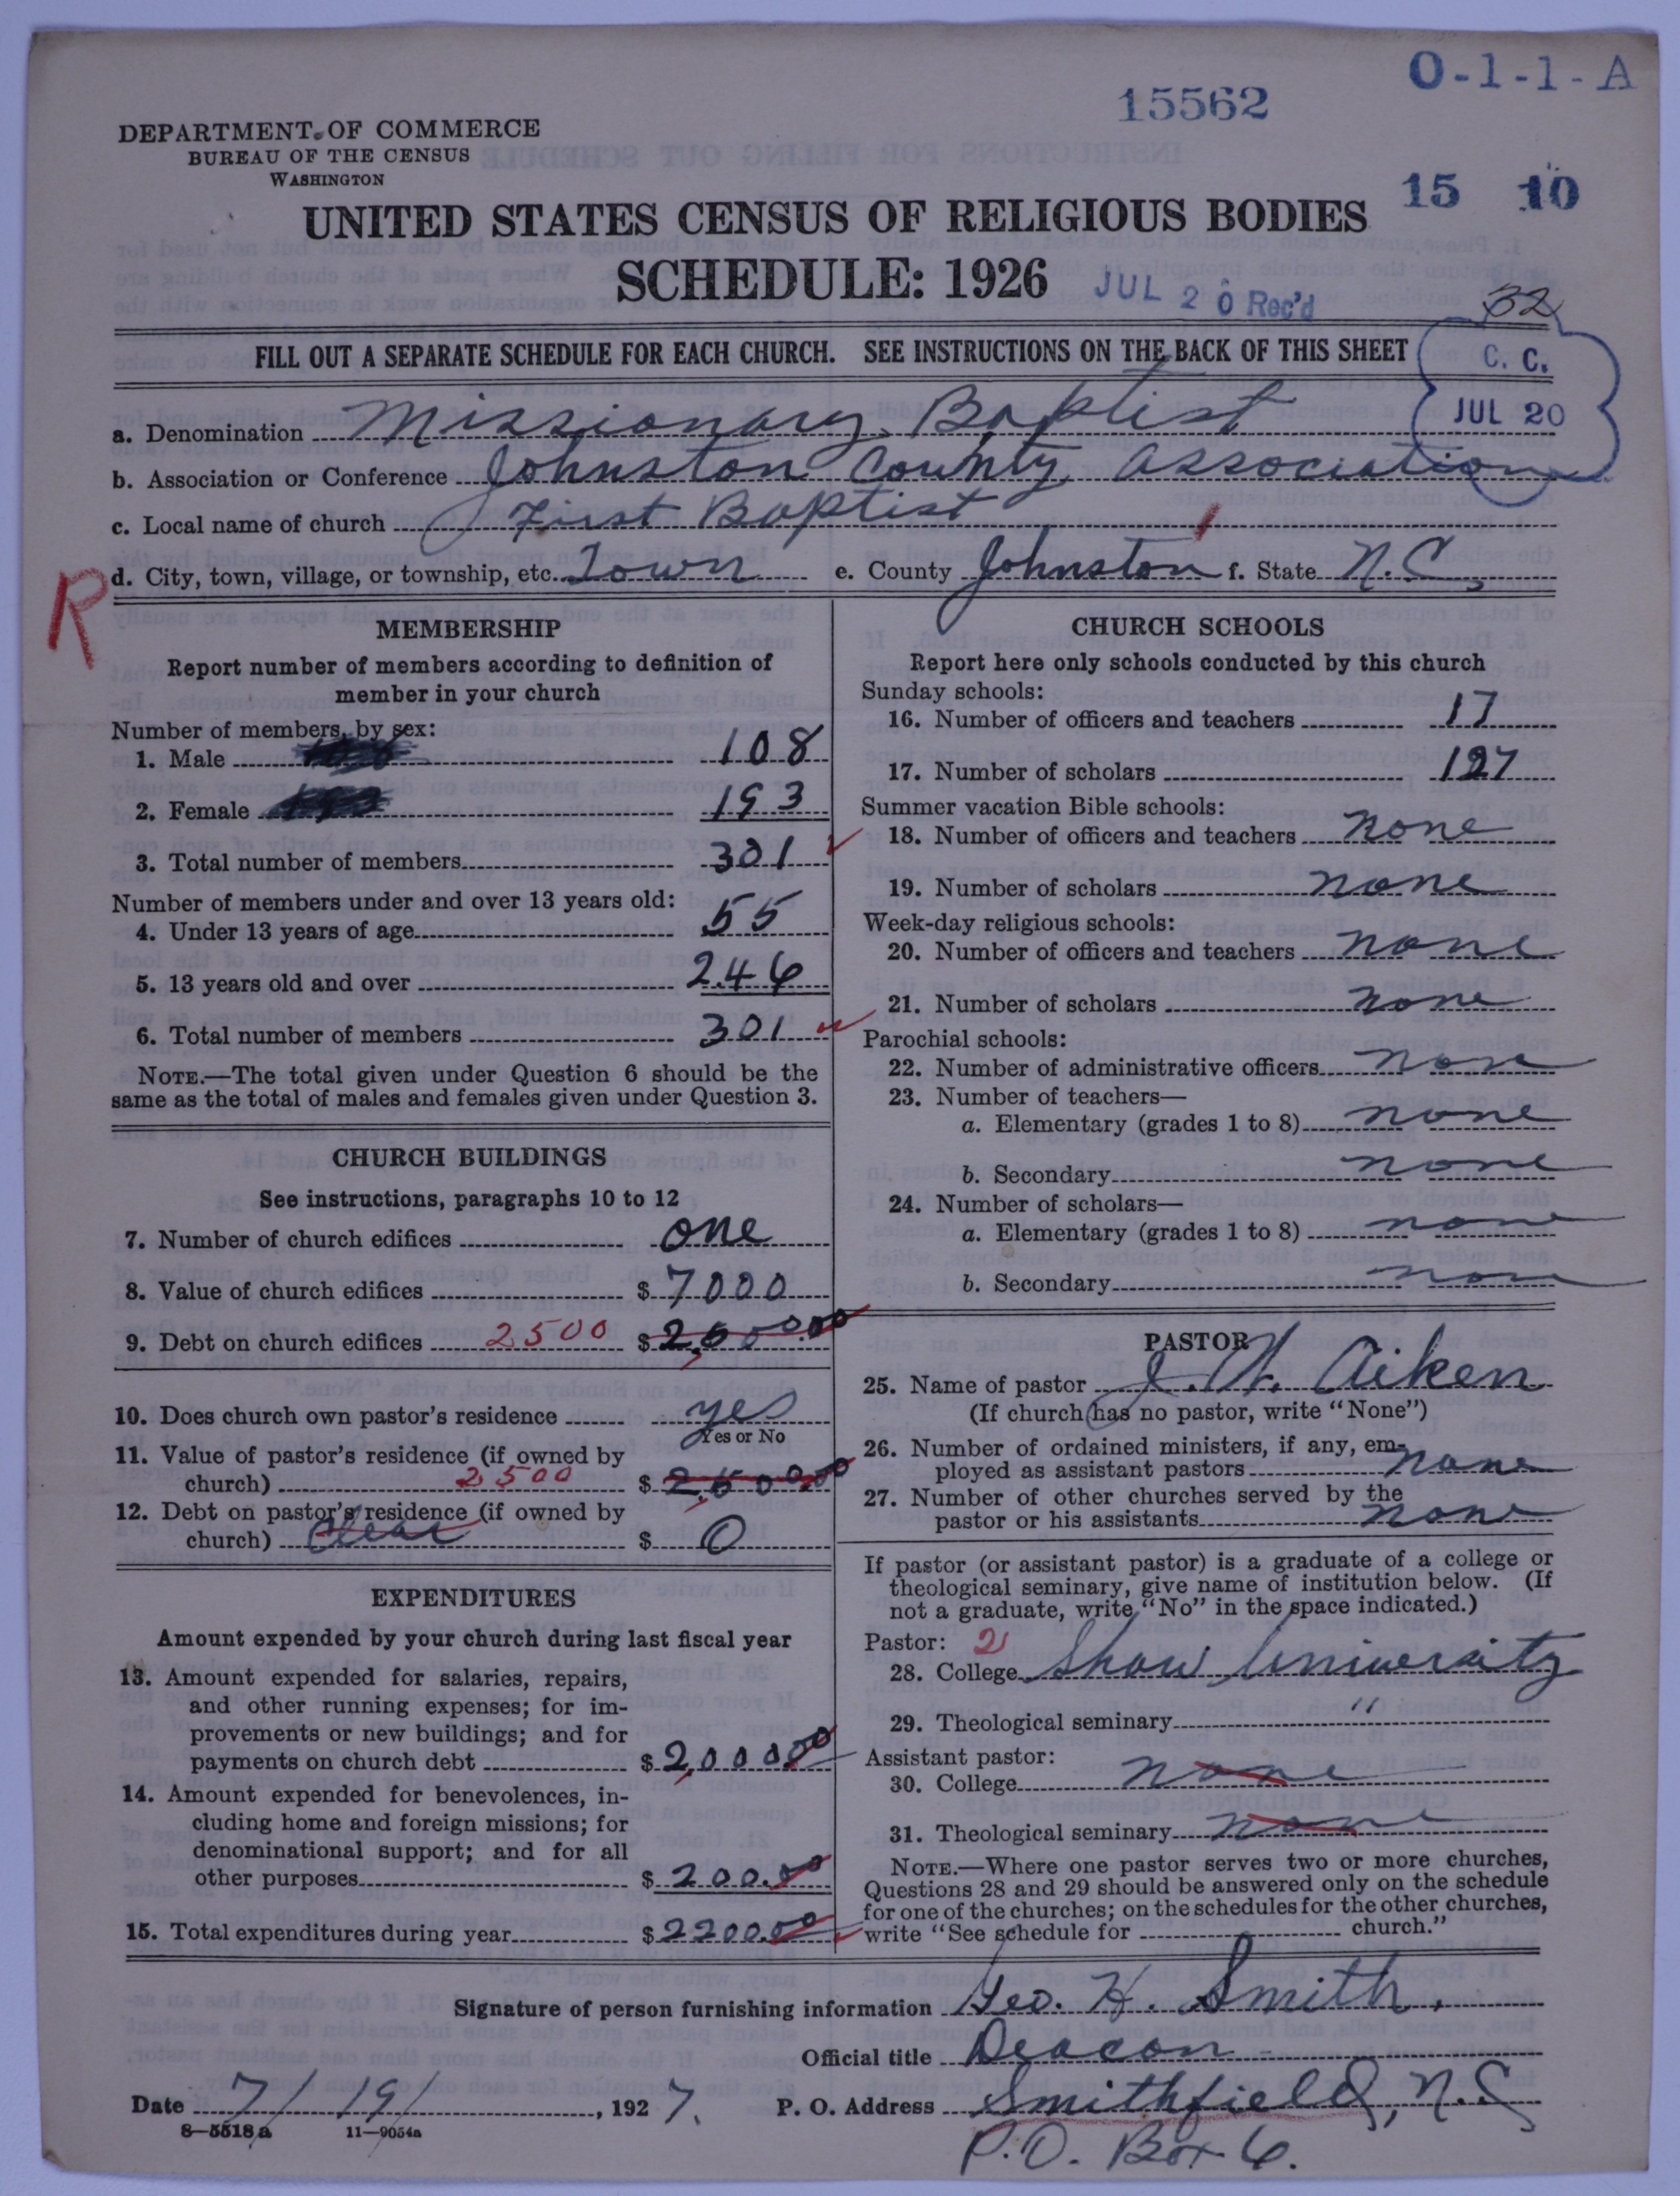 O-1-1-A
15562
DEPARTMENT OF COMMERCE
BUREAU OF THE CENSUS
WASHINGTON
15 10
UNITED STATES CENSUS OF RELIGIOUS BODIES
SCHEDULE: 1926
JUL 20 Rec'd
32
FILL OUT A SEPARATE SCHEDULE FOR EACH CHURCH. SEE INSTRUCTIONS ON THE BACK OF THIS SHEET
C. C.
JUL 20
a. Denomination Missionary Baptist
b. Association or Conference Johnston County Association
c. Local name of church First Baptist
d. City, town, village, or township, etc. Town e. County Johnston f. State N.C.
R
MEMBERSHIP
Report number of members according to definition of
member in your church
Number of members, by sex:
1. Male 108
2. Female 193
3. Total number of members 301
Number of members under and over 13 years old:
4. Under 13 years of age 55
5. 13 years old and over 246
6. Total number of members 301
NOTE.—The total given under Question 6 should be the
same as the total of males and females given under Question 3.
CHURCH BUILDINGS
See instructions, paragraphs 10 to 12
7. Number of church edifices one
8. Value of church edifices $7000
9. Debt on church edifices 2500 $2,500.00
10. Does church own pastor's residence yes
Yes or No
11. Value of pastor's residence (if owned by
church) 2500 $2,500.00
12. Debt on pastor's residence (if owned by
church) Clear $ 0
EXPENDITURES
Amount expended by your church during last fiscal year
13. Amount expended for salaries, repairs,
and other running expenses; for im-
provements or new buildings; and for
payments on church debt $2,000.00
14. Amount expended for benevolences, in-
cluding home and foreign missions; for
denominational support; and for all
other purposes $200.00
15. Total expenditures during year $2200.00
CHURCH SCHOOLS
Report here only schools conducted by this church
Sunday schools:
16. Number of officers and teachers 17
17. Number of scholars 127
Summer vacation Bible schools:
18. Number of officers and teachers none
19. Number of scholars none
Week-day religious schools:
20. Number of officers and teachers none
21. Number of scholars none
Parochial schools:
22. Number of administrative officers none
23. Number of teachers—
a. Elementary (grades 1 to 8) none
b. Secondary none
24. Number of scholars—
a. Elementary (grades 1 to 8) none
b. Secondary none
PASTOR
25. Name of pastor J. W. Aiken
(If church has no pastor, write "None")
26. Number of ordained ministers, if any, em-
ployed as assistant pastors none
27. Number of other churches served by the
pastor or his assistants none
If pastor (or assistant pastor) is a graduate of a college or
theological seminary, give name of institution below. (If
not a graduate, write "No" in the space indicated.)
Pastor: 2
28. College Shaw University
29. Theological seminary "
Assistant pastor:
30. College none
31. Theological seminary none
NOTE.—Where one pastor serves two or more churches,
Questions 28 and 29 should be answered only on the schedule
for one of the churches; on the schedules for the other churches,
write "See schedule for church."
Signature of person furnishing information Geo. K. Smith.
Official title Deacon
Date 7/19/, 1927. P. O. Address Smithfield, N.C
8—5518a 11—9054a
P.O. Box 6.